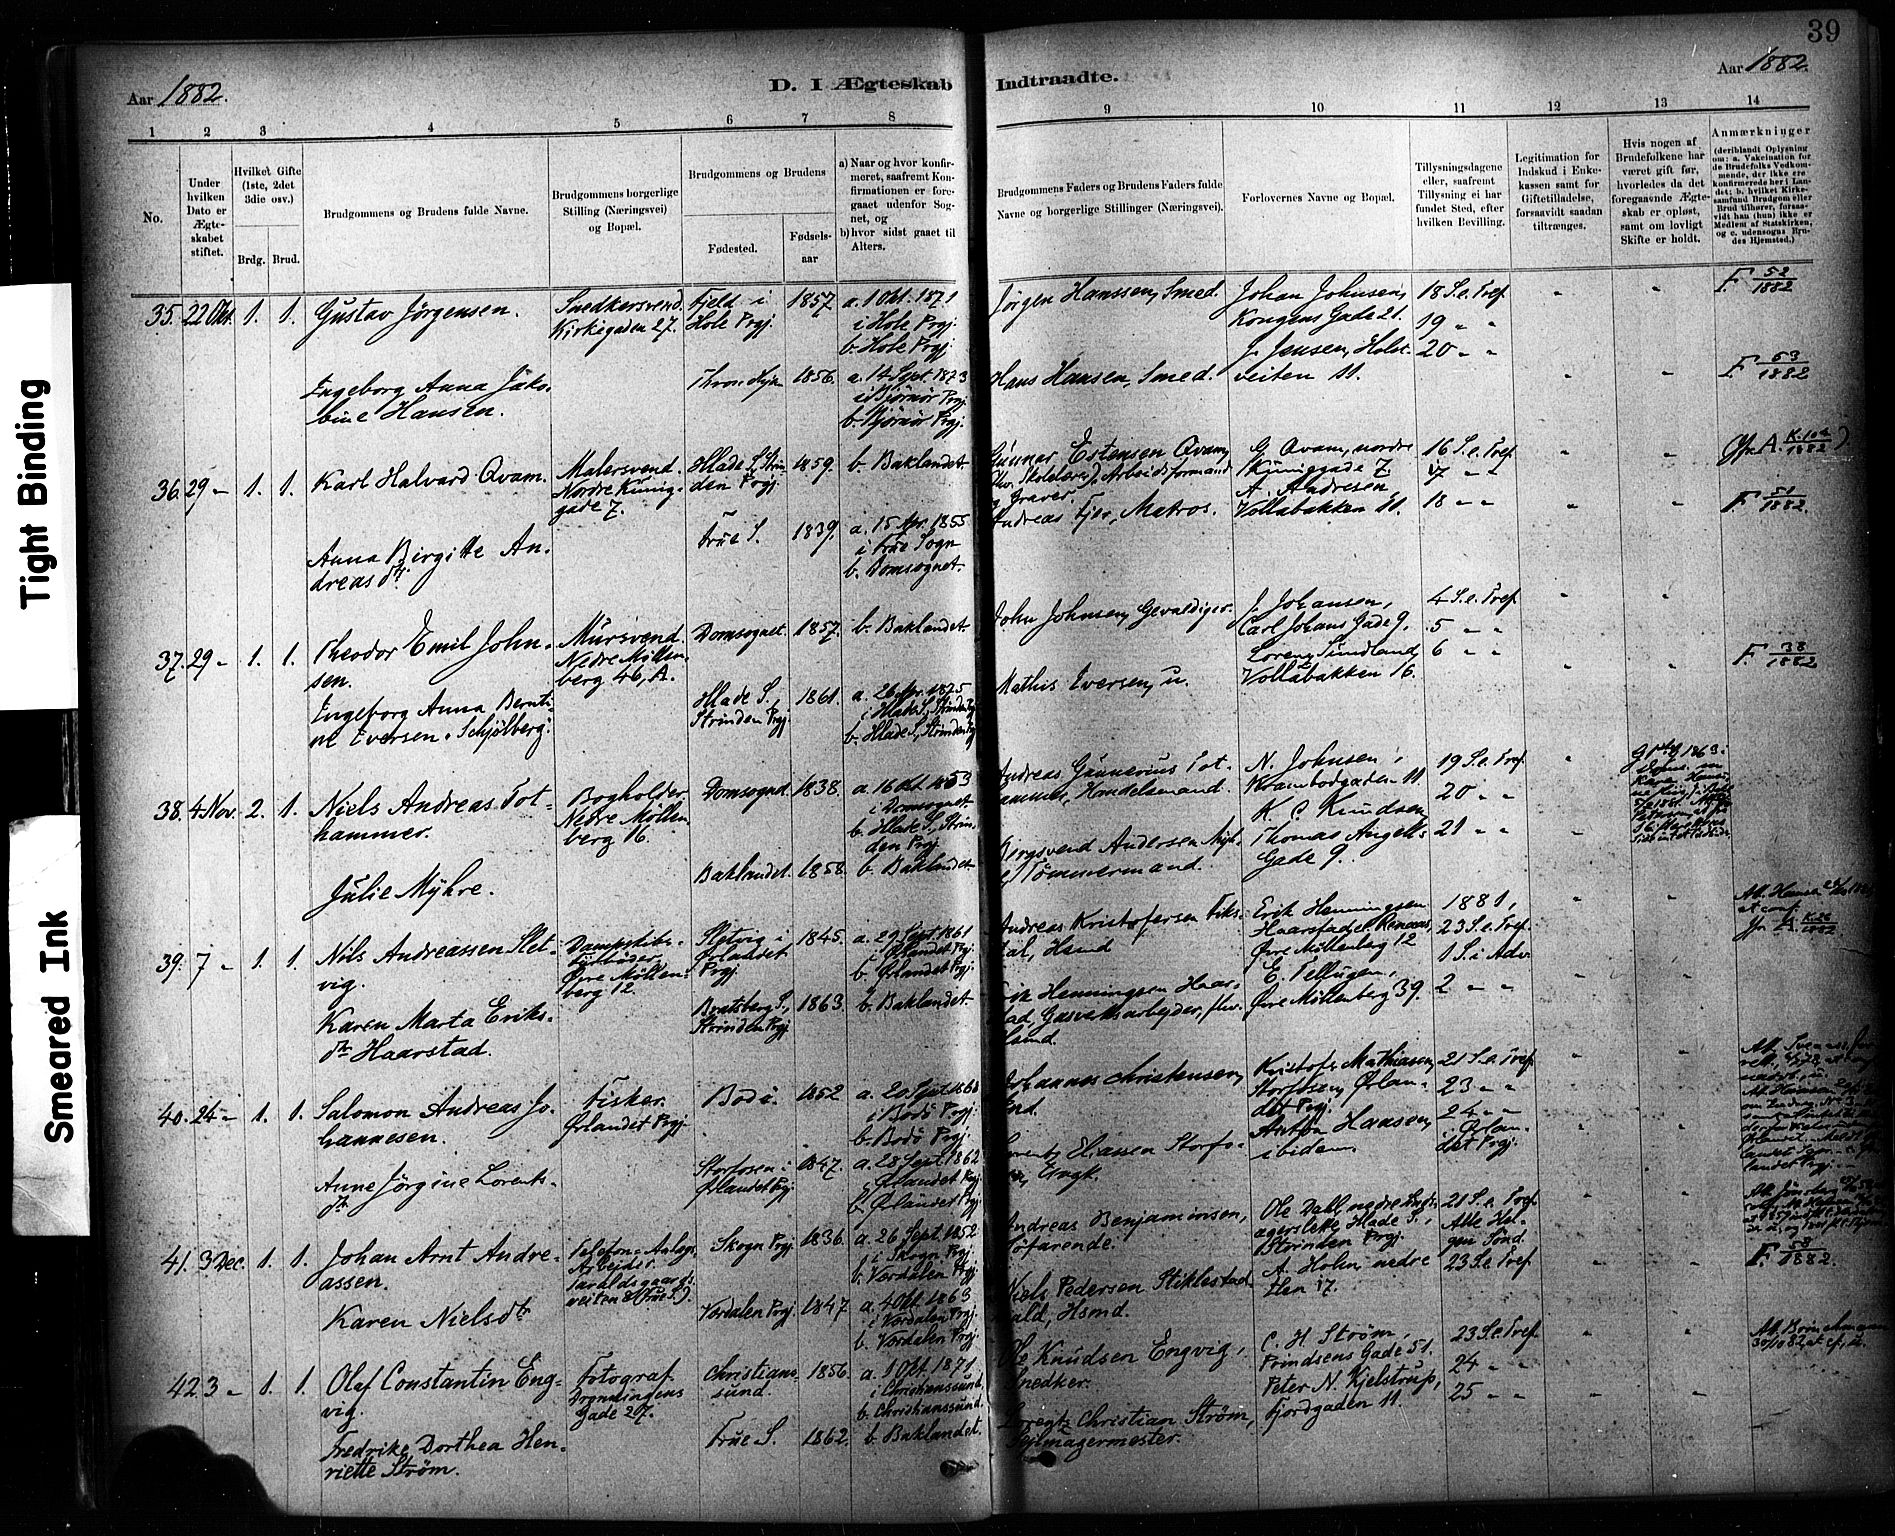 39
Aar 1882.
D. I Ægteskab Indtraadte.
Aar 1882
1 2 3 4 5 6 7 8 9 10 11 12 13 14
No.
Under hvilken Dato er Ægteskabet stiftet.
Hvilket Gifte (1ste, 2det 3die osv.)
Brdg. Brud.
Brudgommens og Brudens fulde Navne.
Brudgommens borgerlige Stilling (Næringsvei) og Bopæl.
Brudgommens og Brudens
Fødested.
Fødselsaar
a) Naar og hvor konfirmeret, saafremt Konfirmationen er foregaaet udenfor Sognet, og
b) hvor sidst gaaet til Alters.
Brudgommens Faders og Brudens Faders fulde Navne og borgerlige Stillinger (Næringsvei).
Forlovernes Navne og Bopæl.
Tillysningsdagene eller, saafremt Tillysning ei har fundet Sted, efter hvilken Bevilling.
Legitimation for Indskud i Enkekassen samt for Giftetilladelse, forsaavidt saadan tiltrænges.
Hvis nogen af Brudefolkene har været gift før, hvorledes da det foregaaende Ægteskab er opløst, samt om lovligt Skifte er holdt.
Anmærkninger (deriblandt Oplysning om: a. Vakcination for de Brudefolks Vedkommende, der ikke ere konfirmerede her i Landet; b. hvilket Kirkesamfund Brudgom eller Brud tilhører, forsaavidt han (hun) ikke er Medlem af Statskirken, og c. udensogns Brudes Hjemsted.)
35. 22 Okt. 1. 1. Gustav Jörgensen.
Snedkersvend. Kirkegaden 27.
Fjeld i Hole Prgj.
1857.
a. 1 Okt. 1871 i Hole Prgj.
b. Hole Prgj.
Jörgen Hanssen, Smed.
Johan Johnsen, Kongens Gade 21.
J. Jensen, Holstveiten 11.
18 S. e. Tref.
19 " "
20 " "
F. 52/1882
Engeborg Anna Jakobine Hansen.
1856.
a. 14 Sept. 1873 i Bjørnör Prgj.
b. Bjørnör Prgj.
Hans Hansen, Smed.
F. 53/1882
36. 29 " 1. 1. Karl Halvard Qvam.
Malersvend. Nordre Kunniggade 7.
Hlade S., Strinden Prgj.
1859.
b. Baklandet.
Gunnar Estensen Qvam,
Arbeidsformand
G. Qvam, nordre Kunniggade 7.
A. Andresen, Vollabakken 11.
16 S. e. Tref.
17 " "
18 " "
Anna Birgitte Andreasdtr.
Frue S.
1839.
a. 15 Apr. 1855 i Frue Sogn
b. Domsognet.
Andreas Fjer, Matros.
F. 51/1882.
37. 29 " 1. 1. Theodor Emil Johnsen.
Mursvend. Nedre Möllenberg 46, A.
Domsognet.
1857.
b. Baklandet.
John Johnsen, Gevaldiger.
J. Johansen, Carl Johans Gade 9.
Lorens Sundland, Vollabakken 16.
4 S. e. Tref.
5 " "
6 " "
Engeborg Anna Berntine Eversen Schjölberg.
Hlade S. Strinden Prgj.
1861.
a. 26 Apr. 1875 i Hlade S., Strinden Prgj.
b. Hlade S., Strinden Prgj.
Mathis Eversen, u.
F. 38/1882
38. 4 Nov. 2. 1. Niels Andreas Tothammer.
Bogholder. Nedre Möllenberg 16.
Domsognet.
1838.
a. 16 Okt. 1853 i Domsognet.
b. Hlade S., Strinden Prgj.
Andreas Gunnerius Tothammer, Handelsmand.
N. Johnsen, Krambodgaden 11.
K. C. Knudsen, Thomas Angells Gade 9.
19 S. e. Tref.
20 " "
21 " "
Julie Myhre.
Baklandet.
1858.
b. Baklandet.
Bergsvend Andersen Myhre, Tömmermand.
39. 7 " 1. 1. Nils Andreassen Sletvig.
Övre Möllenberg 12.
Sletvig i Ørlandet Prgj.
1845.
a. 29 Sept. 1861 i Ørlandet Prgj.
b. Ørlandet Prgj.
Andreas Kristofersen
Erik Henningsen Haarstad,
Øvre Möllenberg 12
E. Tellugen, Øvre Möllenberg 39.
1881,
23 S. e. Tref.
1 S. i Adv.
2 " "
Karen Marta Eriksdtr. Haarstad.
Bratsberg S., Strinden Prgj.
1863.
b. Baklandet.
Erik Henningsen Haarstad, Gasverksarbejder,
40. 24 " 1. 1. Salomon Andreas Johannesen.
Fisker. Ørlandet Prgj.
Bodö.
1852
a. 20 Sept. 1868 i Bodö Prgj.
b. Bodö Prgj.
Johannes Christensen,
Kristofer Mathiasen, Storfosen, Ørlandet Prgj.
Anton Hansen, ibidem.
21 S. e. Tref.
23 " "
24 " "
i Ørlandet Prgj.
Anne Jörgine Lorentsdtr.
Storfosen i Ørlandet Prgj.
1847.
a. 28 Sept. 1862 i Ørlandet Prgj.
b. Ørlandet Prgj.
Lorents Eliassen Storfosen,
41. 3 Dec. 1. 1. Johan Arnt Andreassen.
Telefon-Anlægs Arbejder.
Skogn Prgj.
1836.
a. 26 Sept. 1852 i Skogn Prgj.
b. Værdalen Prgj.
Andreas Benjaminsen, Söfarende.
Ole Dahl, nedre
Hlade S., Strinden Prgj.
A. Holm, nedre Ilen 17.
21 S. e. Tref.
Alle Helgen Sönd.
23 S. e. Tref.
Karen Nielsdtr
Værdalen Prgj.
1847.
a. 4 Okt. 1863 i Værdalen Prgj.
b. Værdalen Prgj.
Niels Pedersen Stiklestad
F. 58/1882.
42. 3 " 1. 1. Olaf Constantin Engvig.
Fotograf. Dronningens Gade 27.
Christianssund.
1856.
a. 1 Okt. 1871, i Christianssund.
b. Christianssund.
Ole Knudsen Engvig, Snedker.
C. H. Ström, Prindsens Gade 51.
Peter N. Kjelstrup, Fjordgaden 11.
23 S. e. Tref.
24 " "
25 " "
Fredrike Dorthea Henriette Ström.
Frue S.
1862.
b. Baklandet.
Lorentz Christian Ström, Sejlmagermester.
Tight Binding
Smeared Ink